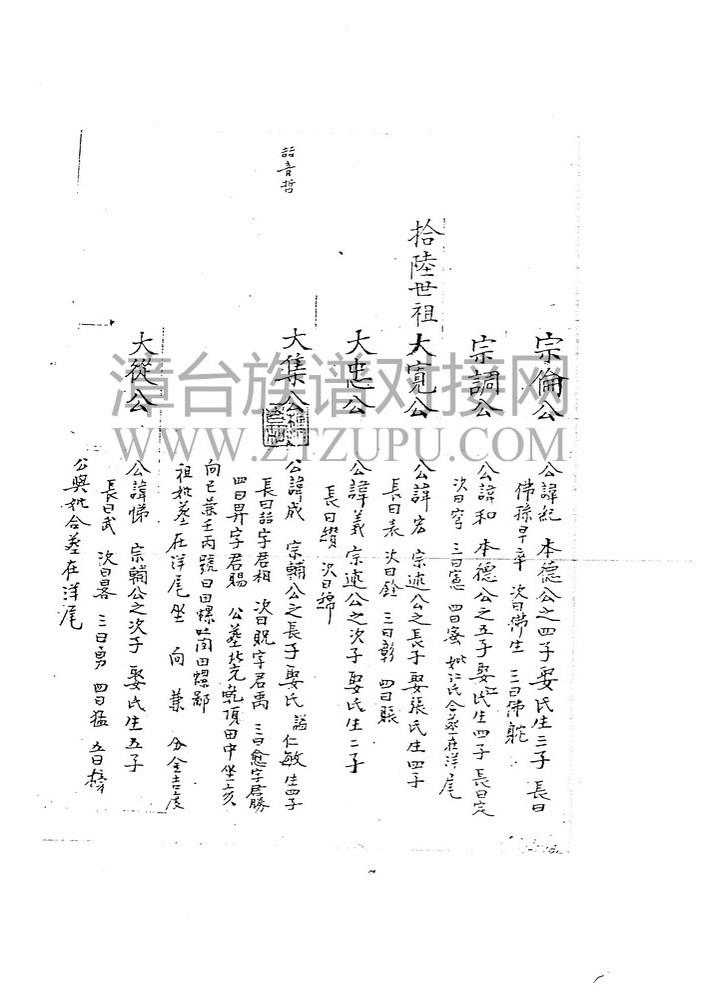 宗倫公
公諱紀 本德公之四子娶氏生三子 長曰
佛孫早卒 次曰佛生 三曰佛乾
宗調公
公諱和 本德公之五子娶江氏生四子 長曰定
次曰穹 三曰憲 四曰蜜 妣江氏合葬在洋尾
拾陸世祖
大寬公
公諱宏 宗連公之長子娶張氏生四子
長曰表 次曰銓 三曰彰 四曰賬
大忠公
公諱義 宗連公之次子 娶氏生二子
長曰纘 次曰
大集公
公諱成 宗輔公之長子 娶氏 諡仁敏 生四子
長曰喆字君相 次曰貺字君禹 三曰愈字君勝
四曰昇字君賜 公墓 頂田中坐亥
向巳兼壬丙號曰田螺吐肉田螺鄒
祖妣墓在洋尾坐 向 兼 分金
喆音哲
大從公
公諱悌 宗輔公之次子 娶氏生五子
長曰武 次曰畧 三曰勇 四曰猛 五曰榜
公與妣合葬在洋尾
漳台族谱对接网
WWW.ZTZUPU.COM